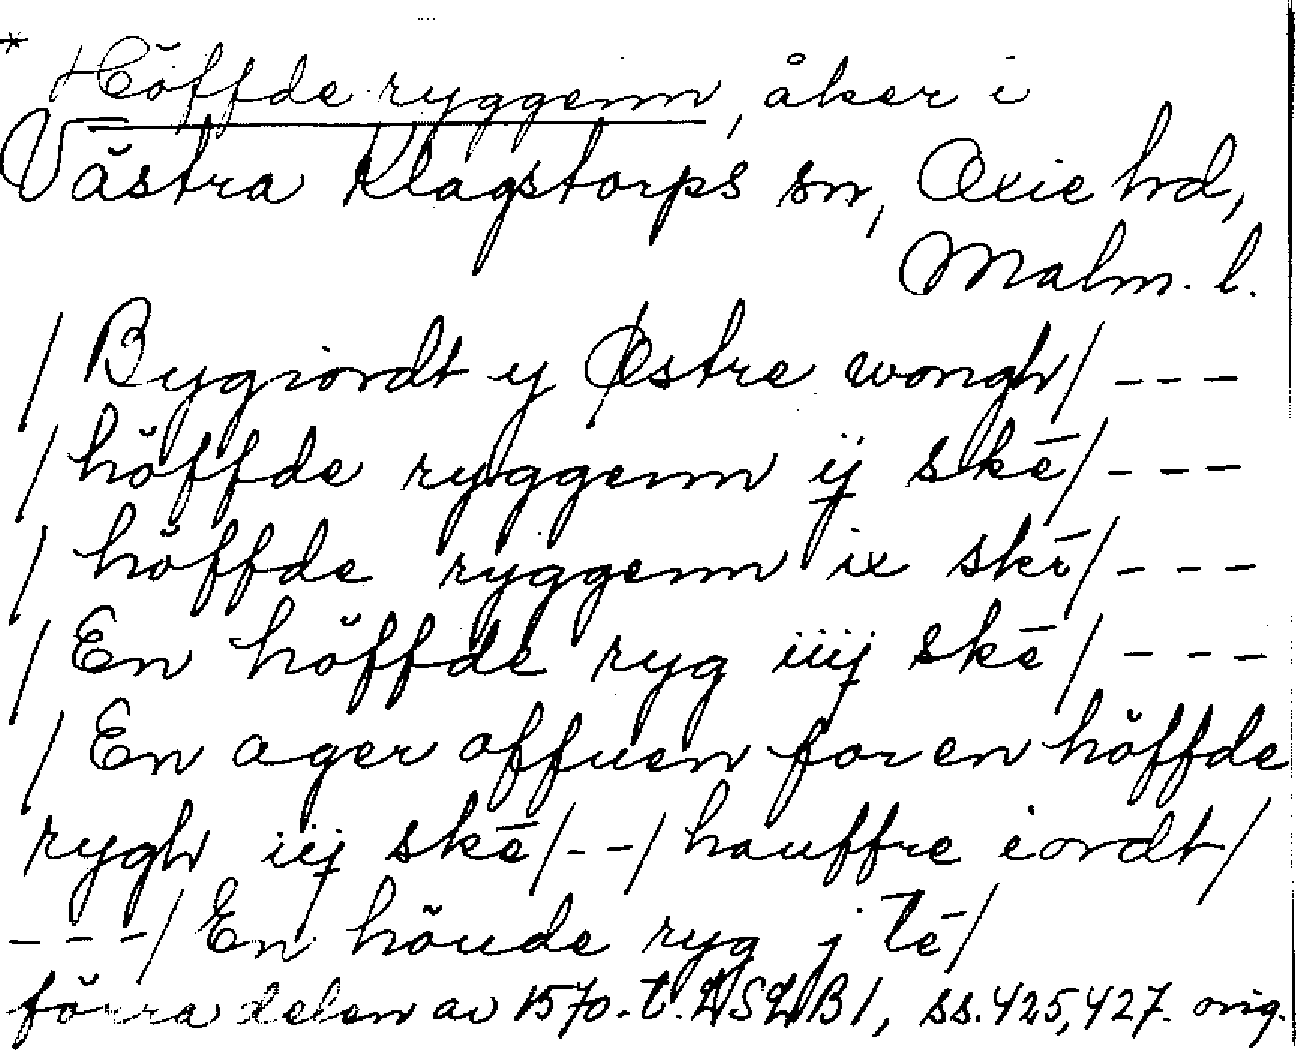 * Höffde ryggenn, åker i
Västra Klagstorps sn, Oxie hd,
Malm. l.
/ Bygiordt y Østre wongh / ---
/ höffde ryggenn ij skē / ---
/ höffde ryggenn ix skē / ---
/ En höffde ryg iiij skē / ---
/ En ager offuen for en höffde
rygh iij skē / -- / hauffre iordt /
--- / En höude ryg j tē /
förra delen av 1570-t. LSLB 1, ss. 425, 427. orig.